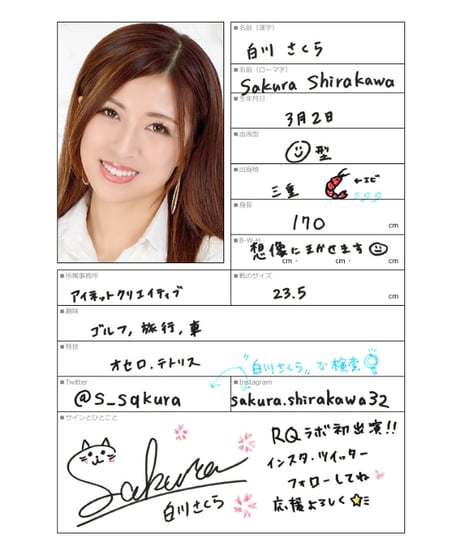 ■名前（漢字）
白川 さくら
■名前（ローマ字）
Sakura Shirakawa
■生年月日
3月2日
■血液型
型
■出身地
三重 ←エビ
■身長
170 cm
■B-W-H
想像にまかせます
cm - cm - cm
■所属事務所
アイネットクリエイティブ
■靴のサイズ
23.5 cm
■趣味
ゴルフ, 旅行, 車
■特技
オセロ.テトリス
"白川さくら"で検索
■Twitter
@S_Sqkura
■Instagram
sakura.shirakawa32
■サインとひとこと
Sakura
白川さくら
RQラボ初出演!!
インスタ・ツイッター
フォローしてね
応援よろしく